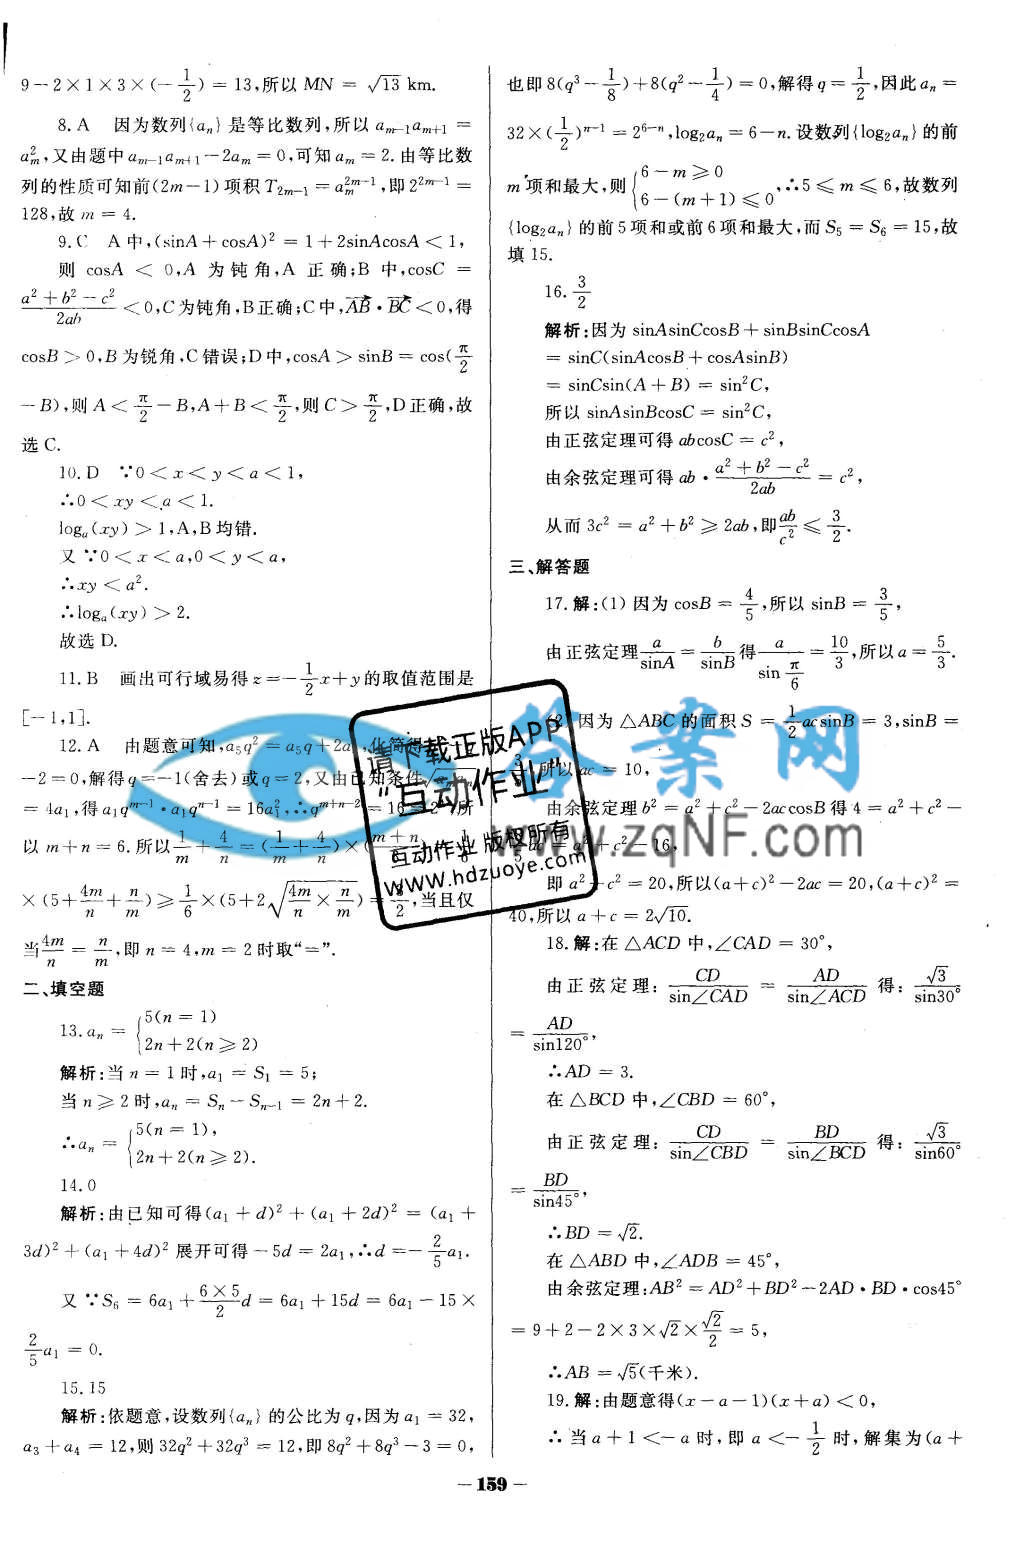 9-2×1×3×(-1/2)=13,所以 MN=√13 km.
8.A 因为数列{aₙ}是等比数列,所以 aₘ₋₁aₘ₊₁=
aₘ²,又由题中 aₘ₋₁aₘ₊₁-2aₘ=0,可知 aₘ=2.由等比数
列的性质可知前(2m-1)项积 T₂ₘ₋₁=aₘ²ᵐ⁻¹,即 2²ᵐ⁻¹=
128,故 m=4.
9.C A中,(sinA+cosA)²=1+2sinAcosA<1,
则 cosA<0,A 为钝角,A 正确;B 中,cosC=
(a²+b²-c²)/2ab<0,C为钝角,B正确;C中,AB→·BC→<0,得
cosB>0,B为锐角,C错误;D中,cosA>sinB=cos(π/2
-B),则 A<π/2-B,A+B<π/2,则 C>π/2,D正确,故
选 C.
10.D ∵0<x<y<a<1,
∴0<xy<a<1.
logₐ(xy)>1,A,B均错.
又∵0<x<a,0<y<a,
∴xy<a².
∴logₐ(xy)>2.
故选 D.
11.B 画出可行域易得 z=-1/2x+y的取值范围是
[-1,1].
12.A 由题意可知,a₅q²=a₅q+2a,化简得
-2=0,解得q=-1(舍去)或q=2,又由已知条件
=4a₁,得 a₁qᵐ⁻¹·a₁qⁿ⁻¹=16a₁²,∴qᵐ⁺ⁿ⁻²=16=2,所
以 m+n=6.所以1/m+4/n=(1/m+4/n)×(m+n)
×(5+4m/n+n/m)≥1/6×(5+2√(4m/n×n/m))=3/2,当且仅
当4m/n=n/m,即 n=4,m=2时取“=”.
二、填空题
13.aₙ={5(n=1)
2n+2(n≥2)
解析:当 n=1时,a₁=S₁=5;
当 n≥2时,aₙ=Sₙ-Sₙ₋₁=2n+2.
∴aₙ={5(n=1),
2n+2(n≥2).
14.0
解析:由已知可得(a₁+d)²+(a₁+2d)²=(a₁+
3d)²+(a₁+4d)²展开可得-5d=2a₁,∴d=-2/5a₁.
又∵S₆=6a₁+(6×5)/2d=6a₁+15d=6a₁-15×
2/5a₁=0.
15.15
解析:依题意,设数列{aₙ}的公比为 q,因为 a₁=32,
a₃+a₄=12,则32q²+32q³=12,即8q²+8q³-3=0,
也即 8(q³-1/8)+8(q²-1/4)=0,解得 q=1/2,因此 aₙ=
32×(1/2)ⁿ⁻¹=2⁶⁻ⁿ,log₂aₙ=6-n.设数列{log₂aₙ}的前
m项和最大,则{6-m≥0
6-(m+1)≤0,∴5≤m≤6,故数列
{log₂aₙ}的前5项和或前6项和最大,而 S₅=S₆=15,故
填 15.
16.3/2
解析:因为 sinAsinCcosB+sinBsinCcosA
=sinC(sinAcosB+cosAsinB)
=sinCsin(A+B)=sin²C,
所以 sinAsinBcosC=sin²C,
由正弦定理可得 abcosC=c²,
由余弦定理可得 ab·(a²+b²-c²)/2ab=c²,
从而 3c²=a²+b²≥2ab,即ab/c²≤3/2.
三、解答题
17.解:(1)因为 cosB=4/5,所以 sinB=3/5,
由正弦定理a/sinA=b/sinB得a/sin(π/6)=10/3,所以 a=5/3.
因为△ABC的面积 S=1/2acsinB=3,sinB=
3/5,所以 ac=10,
由余弦定理 b²=a²+c²-2accosB得 4=a²+c²-
8/5ac=a²+c²-16,
即 a²+c²=20,所以(a+c)²-2ac=20,(a+c)²=
40,所以 a+c=2√10.
18.解:在△ACD中,∠CAD=30°,
由正弦定理:CD/sin∠CAD=AD/sin∠ACD得:√3/sin30°
=AD/sin120°,
∴AD=3.
在△BCD中,∠CBD=60°,
由正弦定理:CD/sin∠CBD=BD/sin∠BCD得:√3/sin60°
=BD/sin45°,
∴BD=√2.
在△ABD中,∠ADB=45°,
由余弦定理:AB²=AD²+BD²-2AD·BD·cos45°
=9+2-2×3×√2×√2/2=5,
∴AB=√5(千米).
19.解:由题意得(x-a-1)(x+a)<0,
∴当 a+1<-a时,即 a<-1/2时,解集为(a+
-159-
请下载正版APP
“互动作业”
互动作业 版权所有
www.hdzuoye.com
答案网
www.zqNF.com